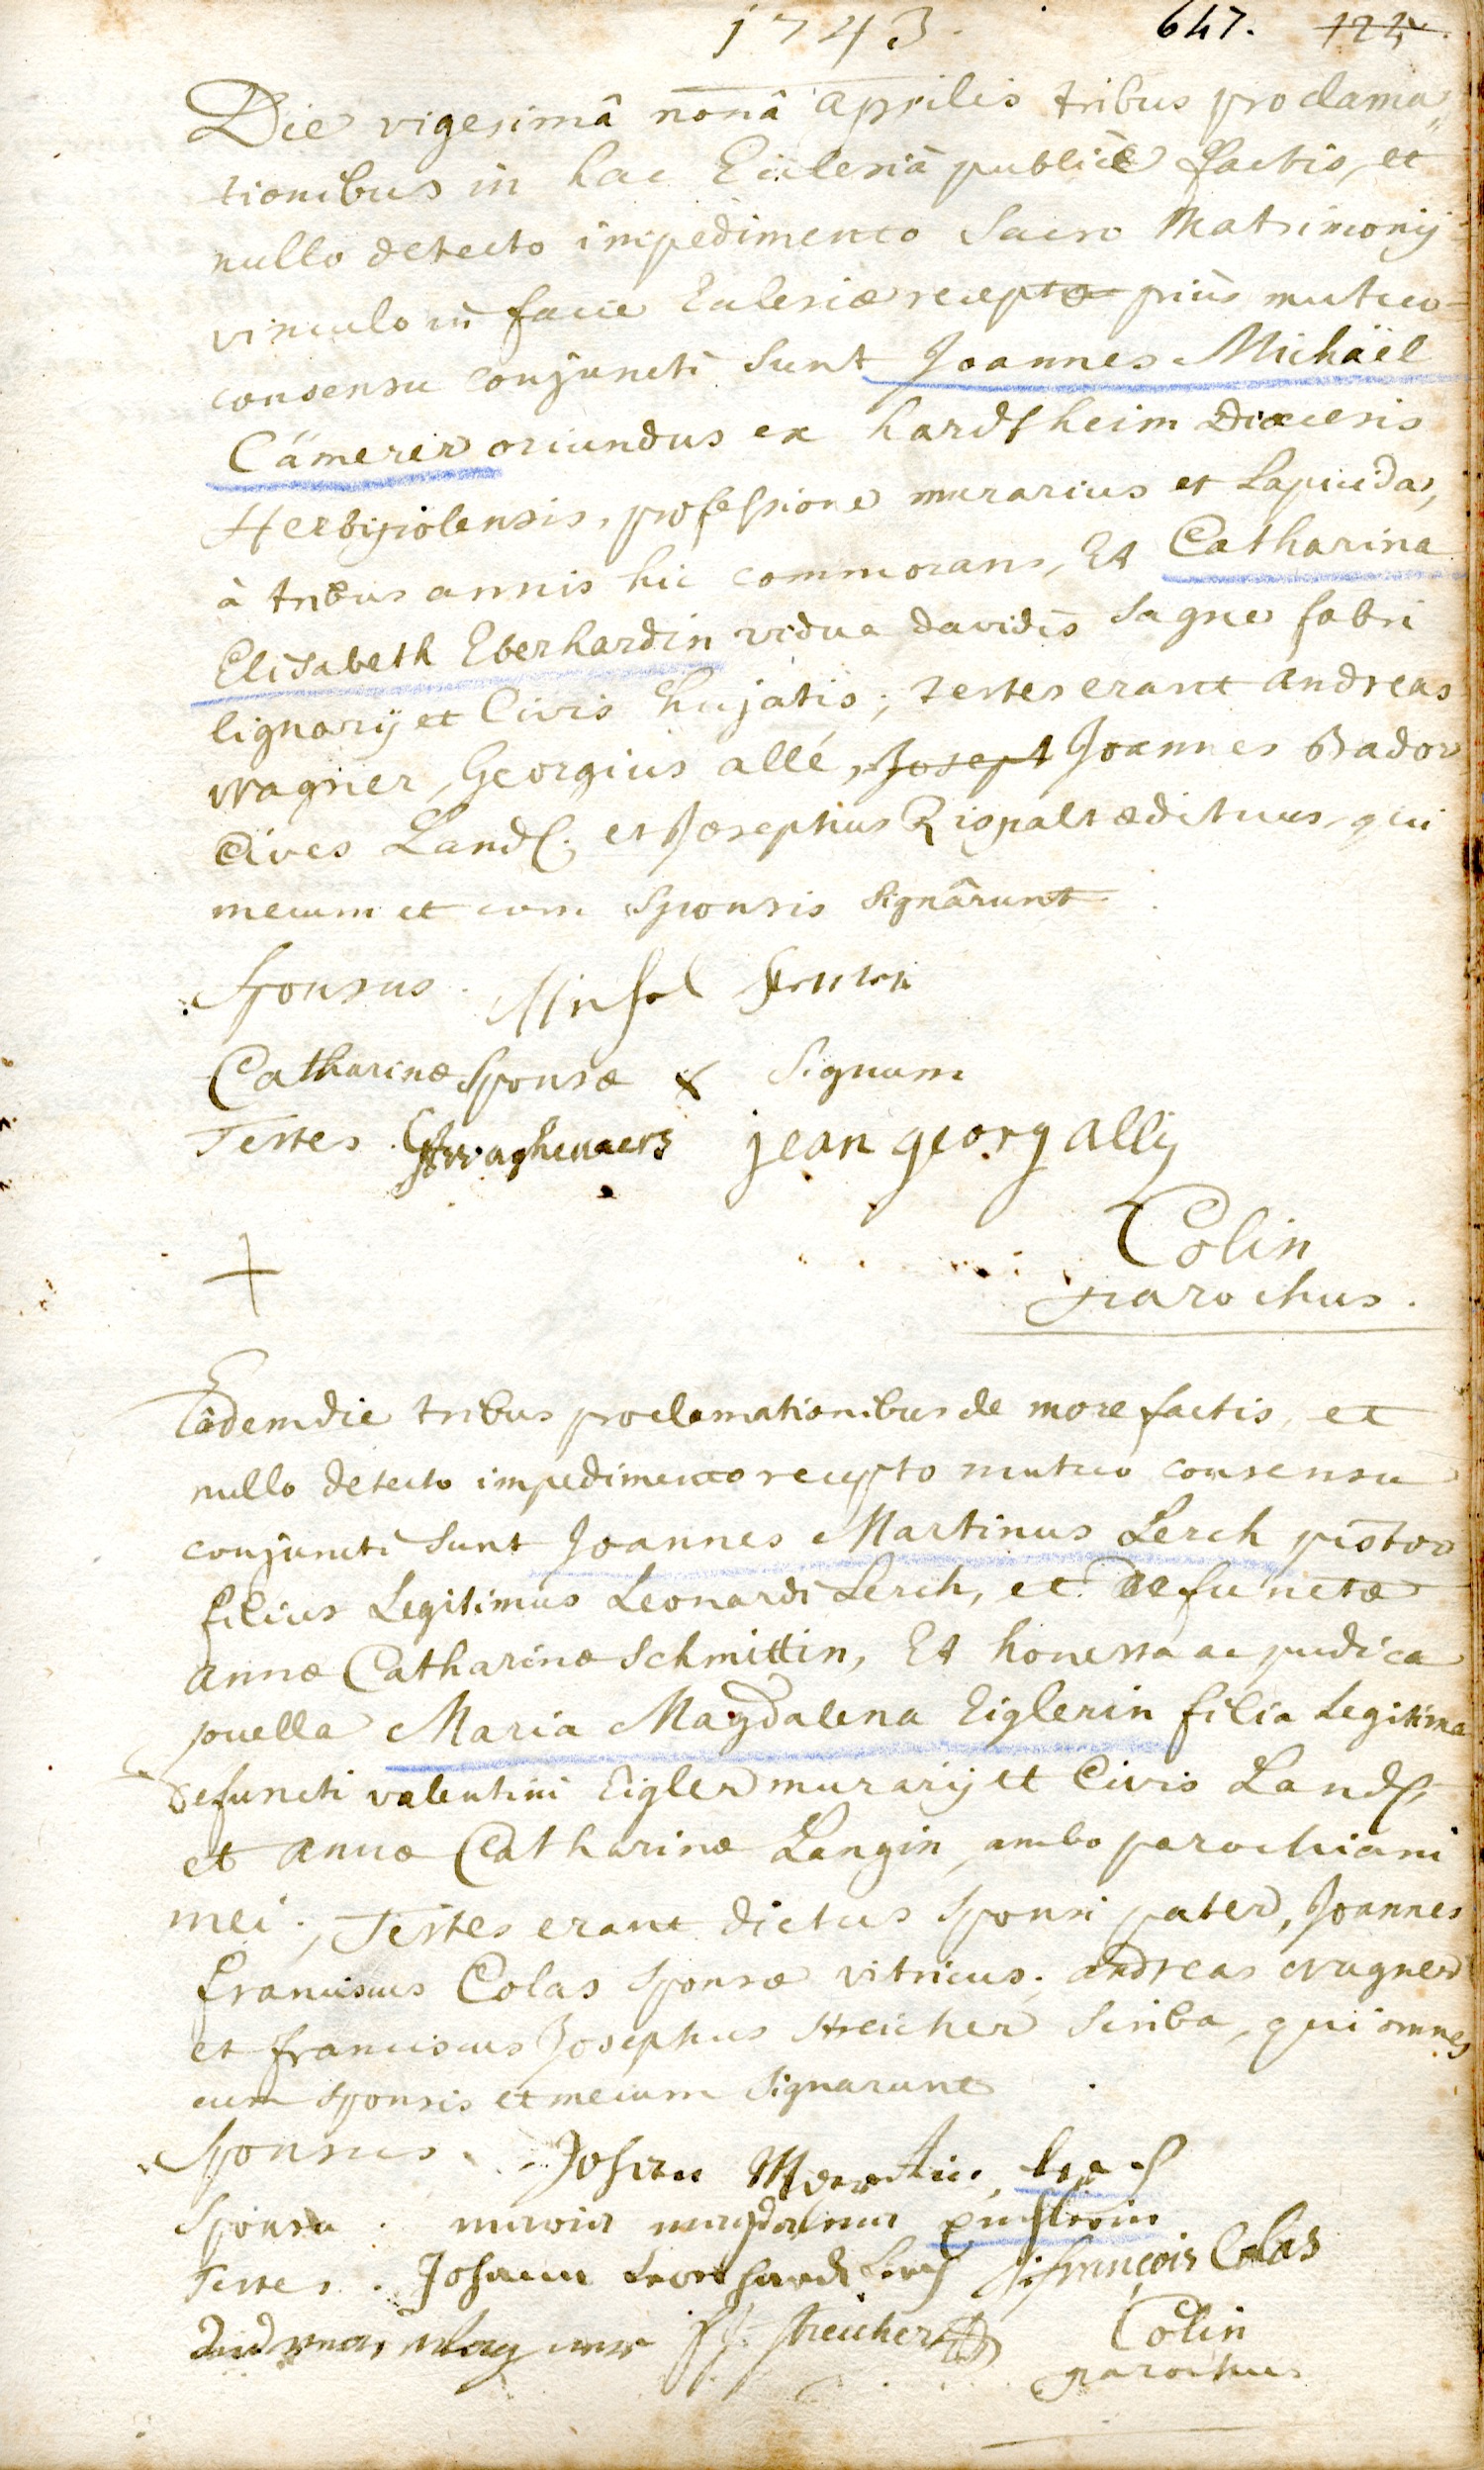 1743. 647. 124.
Die vigesimâ nonâ aprilis tribus proclama„
tionibus in hac Ecclesiâ publicè factis, et
nullo detecto impedimento Sacro Matrimonij
vinculo in facie Ecclesiæ recepto priùs mutuo
consensu conjuncti Sunt Joannes Michäel
Cämerer oriundus ex hardtheim Diœcesis
Herbipolensis, professione murarius et Lapicida,
à tribus annis hic commorans, Et Catharina
Elisabeth Eberhardin vidua davidis Sagne fabri
lignarij et Civis hujatis; testes erant andreas
Wagner, Georgius allé, Joseph Joannes Bador
Cives Land. et Josephus Rispalt ædituus, qui
mecum et cum Sponsis Signârunt
Sponsus.
Catharinæ Sponsæ x Signum
Testes. waghenaers jean georg ally
+ Colin
parochus.
Eâdem die tribus proclamationibus de more factis, et
nullo detecto impedimento recepto mutuo consensu
conjuncti Sunt Joannes Martinus Lerch pistor
filius Legitimus Leonardi Lerch, et defunctæ
annæ Catharinæ Schmittin, Et honesta ac pudica
puella Maria Magdalena Eiglerin filia Legitima
defuncti valentini Eigler murarij et Civis Land.
et annæ Catharinæ Langin, ambo parochiani
mei; Testes erant dictus Sponsi pater, Joannes
franciscus Colas Sponsæ vitricus; andreas wagner
et franciscus Josephus Streicher Scriba, qui omnes
cum Sponsis et mecum Signarunt
Sponsus. Johan Martin Lerch
Sponsa. maria magdalena
Testes. Johann Leonhardt Lerch françois Colas
Andreas Wagner ff. Streicher Colin
parochus